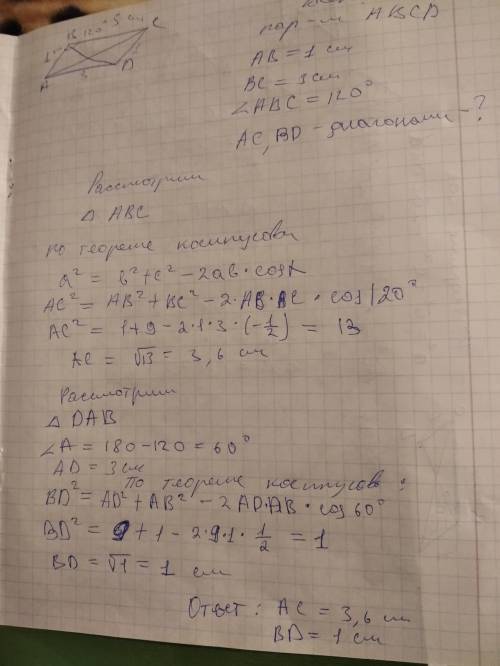 B 120° 3 см C
1
A 3 D
пар-м ABCD
AB = 1 см
BC = 3 см
∠ABC = 120°
AC, BD - диагонали - ?
Рассмотрим
△ ABC
по теореме косинусов
a² = b² + c² - 2ab · cos α
AC² = AB² + BC² - 2 · AB · BC · cos 120°
AC² = 1 + 9 - 2 · 1 · 3 · (-1/2) = 13
AC = √13 = 3,6 см
Рассмотрим
△ DAB
∠A = 180 - 120 = 60°
AD = 3 см
По теореме косинусов:
BD² = AD² + AB² - 2AD·AB · cos 60°
BD² = 9 + 1 - 2 · 9 · 1 · 1/2 = 1
BD = √1 = 1 см
Ответ: AC = 3,6 см
BD = 1 см